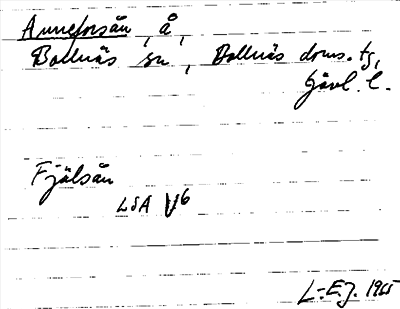 Anneforsån, å,
Bollnäs sn, Bollnäs doms. tg,
Gävl. l.
Fjälsån
LSA V6
L-E.J. 1965